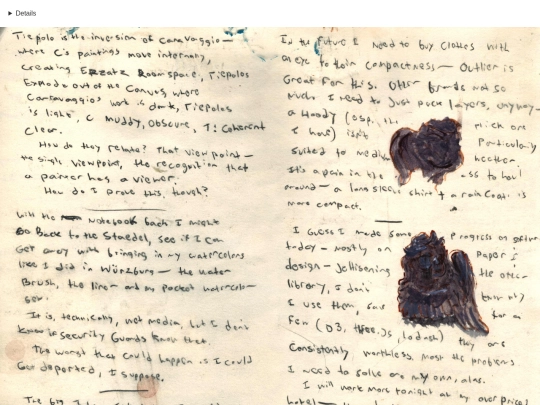 Details
Tiepolo is the inversion of Caravaggio—
where C's paintings move internally,
creating Ersatz Roomspace, Tiepolos
Explode out of the Canvas, where
Carravaggios work is dark, Tiepolos
is light, C muddy, obscure, T: Coherent
Clear.
How do they relate? That view point—
the single viewpoint, the recognition that
a painter has a viewer.
How do I prove this, though?
With the notebook back I might
Go Back to the Staedel, see if I can
Get away with bringing in my watercolors
like I did in Würzburg — the water
Brush, the liner and my pocket watercolor
set.
It is, technically, wet media, but I don't
know if security Guards know that.
The worst that could happen is I could
Get deported, I suppose.
The big
In the future I need to buy clothes with
an eye to their compactness — Outlier is
Great for this. Other brands not so
much. I need to Just pack layers, anyway—
a Hoody (esp. the
I have) isn't particularly
suited to weather.
It's a pain in the ass to haul
around — a long sleeve shirt + a rain Coat is
more compact.
I Guess I made some progress on
today — mostly on paper
design — the other
library, I don't
I use them, save for a
few (D3, three.js, lodash) they are
Consistently worthless. most the problems
I need to solve are my own, alas.
I will work more tonight at my over priced
hotel